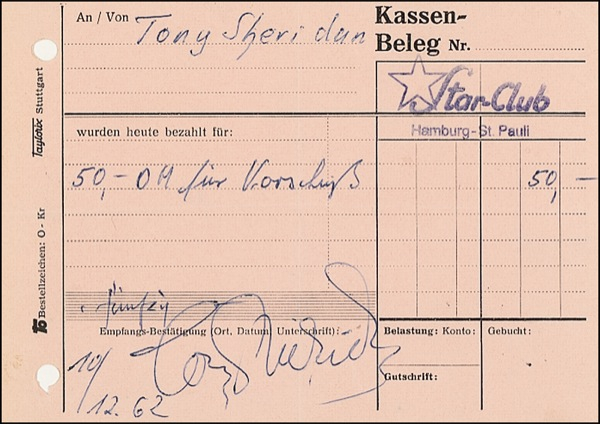 An / Von
Tony Sheridan
Kassen-
Beleg Nr.
Star-Club
Hamburg-St. Pauli
wurden heute bezahlt für:
50,- DM für Vorschuß
50,-
fünfzig
Empfangs-Bestätigung (Ort, Datum, Unterschrift):
Tony Sheridan
10/
12. 62
Belastung: Konto:
Gebucht:
Gutschrift:
Taylorix Stuttgart
Bestellzeichen: O - Kr